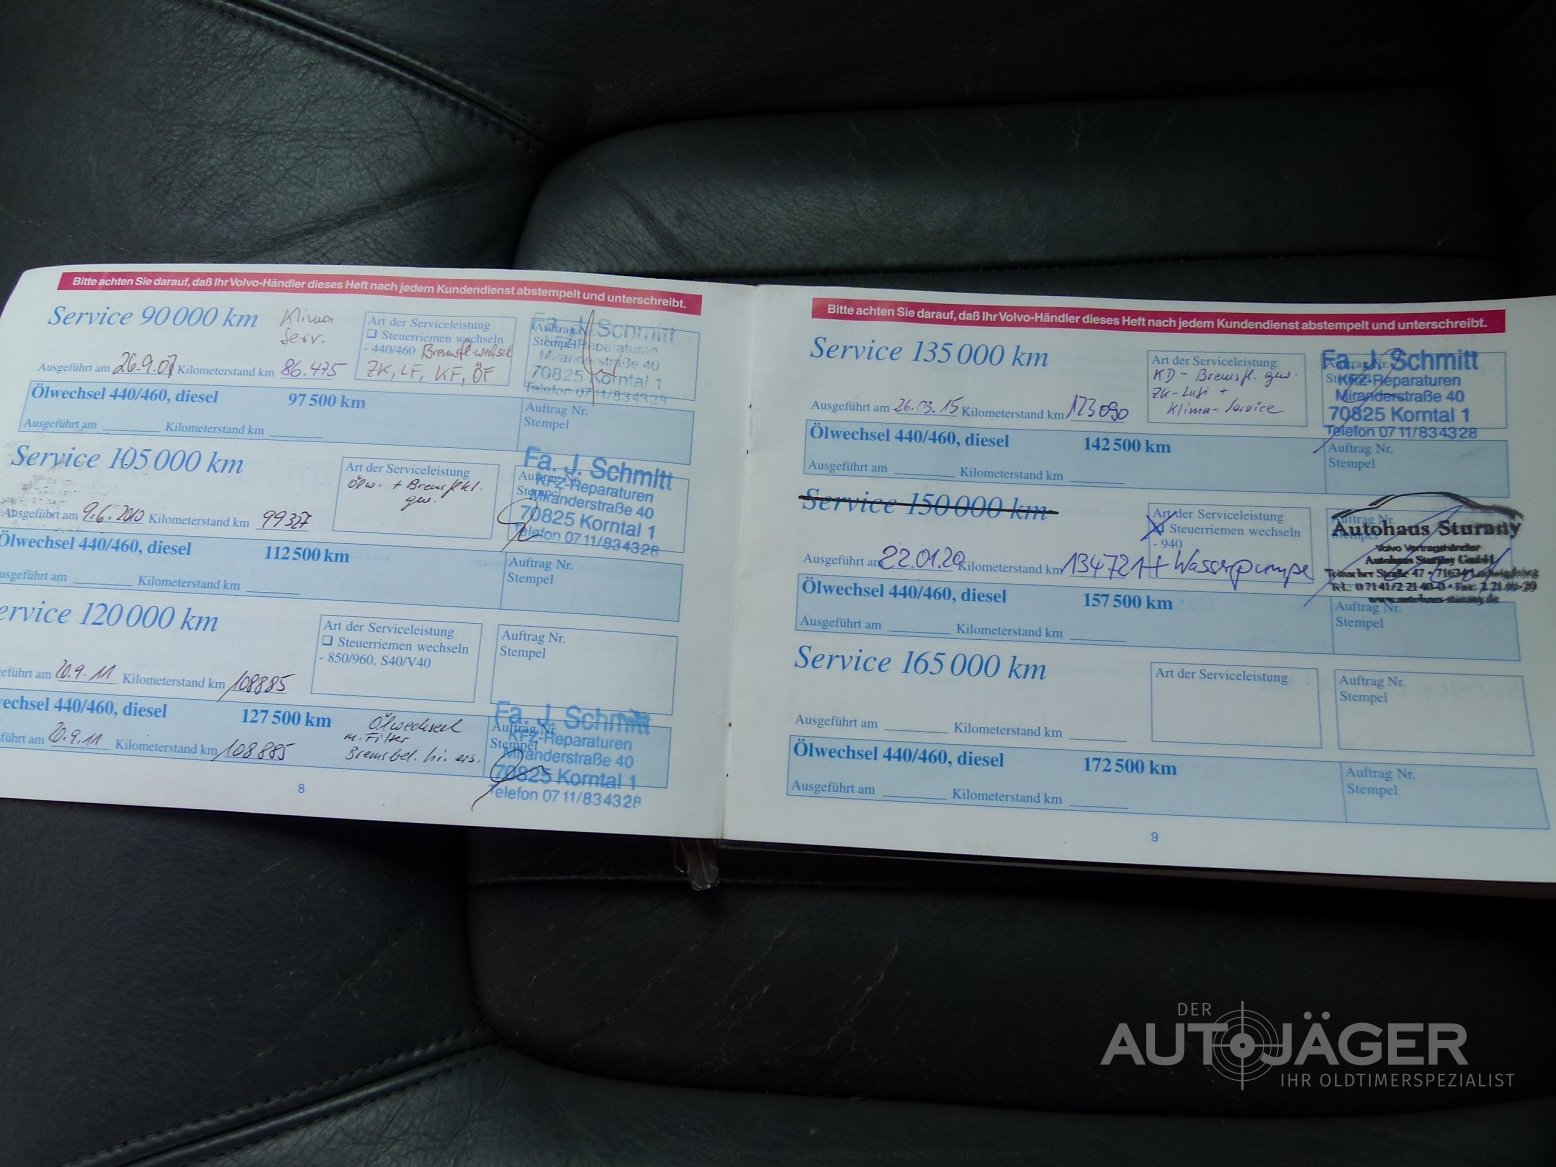 Bitte achten Sie darauf, daß Ihr Volvo-Händler dieses Heft nach jedem Kundendienst abstempelt und unterschreibt.
Service 90 000 km
Klima
Serv.
Art der Serviceleistung
Steuerriemen wechseln
- 440/460 Bremsfl. wechsel
ZK, LF, KF, ÖF
Auftrag Nr.
Stempel
Fa. J. Schmitt
KFZ-Reparaturen
Miranderstraße 40
70825 Korntal 1
Telefon 07 11/83 43 28
Ausgeführt am 26.9.07 Kilometerstand km 86.475
Ölwechsel 440/460, diesel 97 500 km
Ausgeführt am Kilometerstand km
Auftrag Nr.
Stempel
Service 105 000 km
Art der Serviceleistung
Ölw. + Bremsfl.
gew.
Fa. J. Schmitt
KFZ-Reparaturen
Miranderstraße 40
70825 Korntal 1
Telefon 07 11/83 43 28
Ausgeführt am 9.6.2010 Kilometerstand km 99327
Ölwechsel 440/460, diesel 112 500 km
Ausgeführt am Kilometerstand km
Auftrag Nr.
Stempel
Service 120 000 km
Art der Serviceleistung
Steuerriemen wechseln
- 850/960, S40/V40
Auftrag Nr.
Stempel
geführt am 20.9.11 Kilometerstand km 108885
wechsel 440/460, diesel 127 500 km
Ölwechsel
m. Filter
Bremsbel. hi. ers.
führt am 20.9.11 Kilometerstand km 108885
Auftrag Nr.
Stempel
Fa. J. Schmitt
KFZ-Reparaturen
Miranderstraße 40
70825 Korntal 1
Telefon 07 11/83 43 28
8
Bitte achten Sie darauf, daß Ihr Volvo-Händler dieses Heft nach jedem Kundendienst abstempelt und unterschreibt.
Service 135 000 km
Art der Serviceleistung
KD - Bremsfl. gew.
ZK-Luft +
Klima-Service
Fa. J. Schmitt
KFZ-Reparaturen
Miranderstraße 40
70825 Korntal 1
Telefon 07 11/83 43 28
Ausgeführt am 26.03.15 Kilometerstand km 123090
Ölwechsel 440/460, diesel 142 500 km
Ausgeführt am Kilometerstand km
Auftrag Nr.
Stempel
Service 150 000 km
Art der Serviceleistung
Steuerriemen wechseln
- 940
Auftrag Nr.
Autohaus Sturany
Volvo Vertragshändler
Autohaus Sturany GmbH
www.autohaus-sturany.de
Ausgeführt am 22.01.20 Kilometerstand km 134721 + Wasserpumpe
Ölwechsel 440/460, diesel 157 500 km
Ausgeführt am Kilometerstand km
Auftrag Nr.
Stempel
Service 165 000 km
Art der Serviceleistung
Auftrag Nr.
Stempel
Ausgeführt am Kilometerstand km
Ölwechsel 440/460, diesel 172 500 km
Ausgeführt am Kilometerstand km
Auftrag Nr.
Stempel
9
DER
AUTOJÄGER
IHR OLDTIMERSPEZIALIST